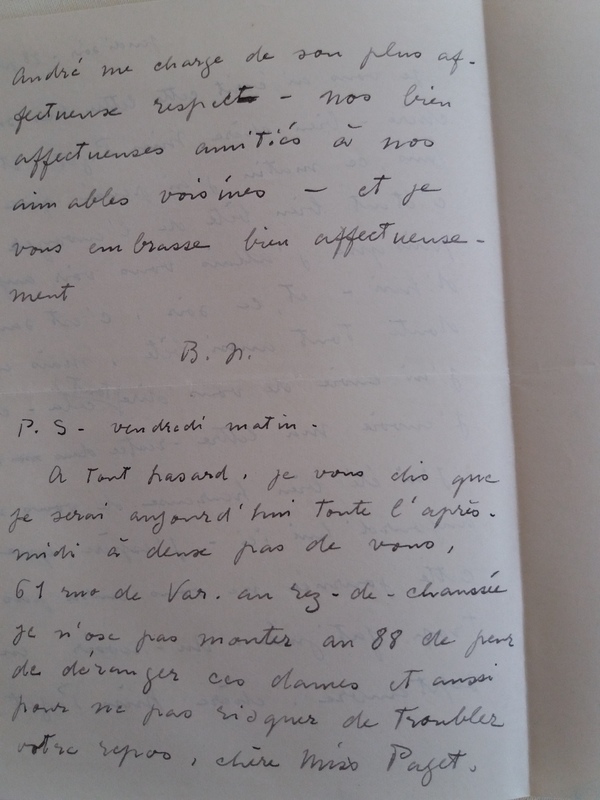 André me charge de son plus af-
fectueux respect - nos bien
affectueuses amitiés à nos
aimables voisines - et je
vous embrasse bien affectueuse-
ment
B. N.
P. S - vendredi matin -
A tout hasard, je vous dis que
je serai aujourd'hui toute l'après-
midi à deux pas de vous,
61 rue de Var. au rez-de-chaussée
je n'ose pas monter au 88 de peur
de déranger ces dames et aussi
pour ne pas risquer de troubler
votre repos, chère Miss Paget.